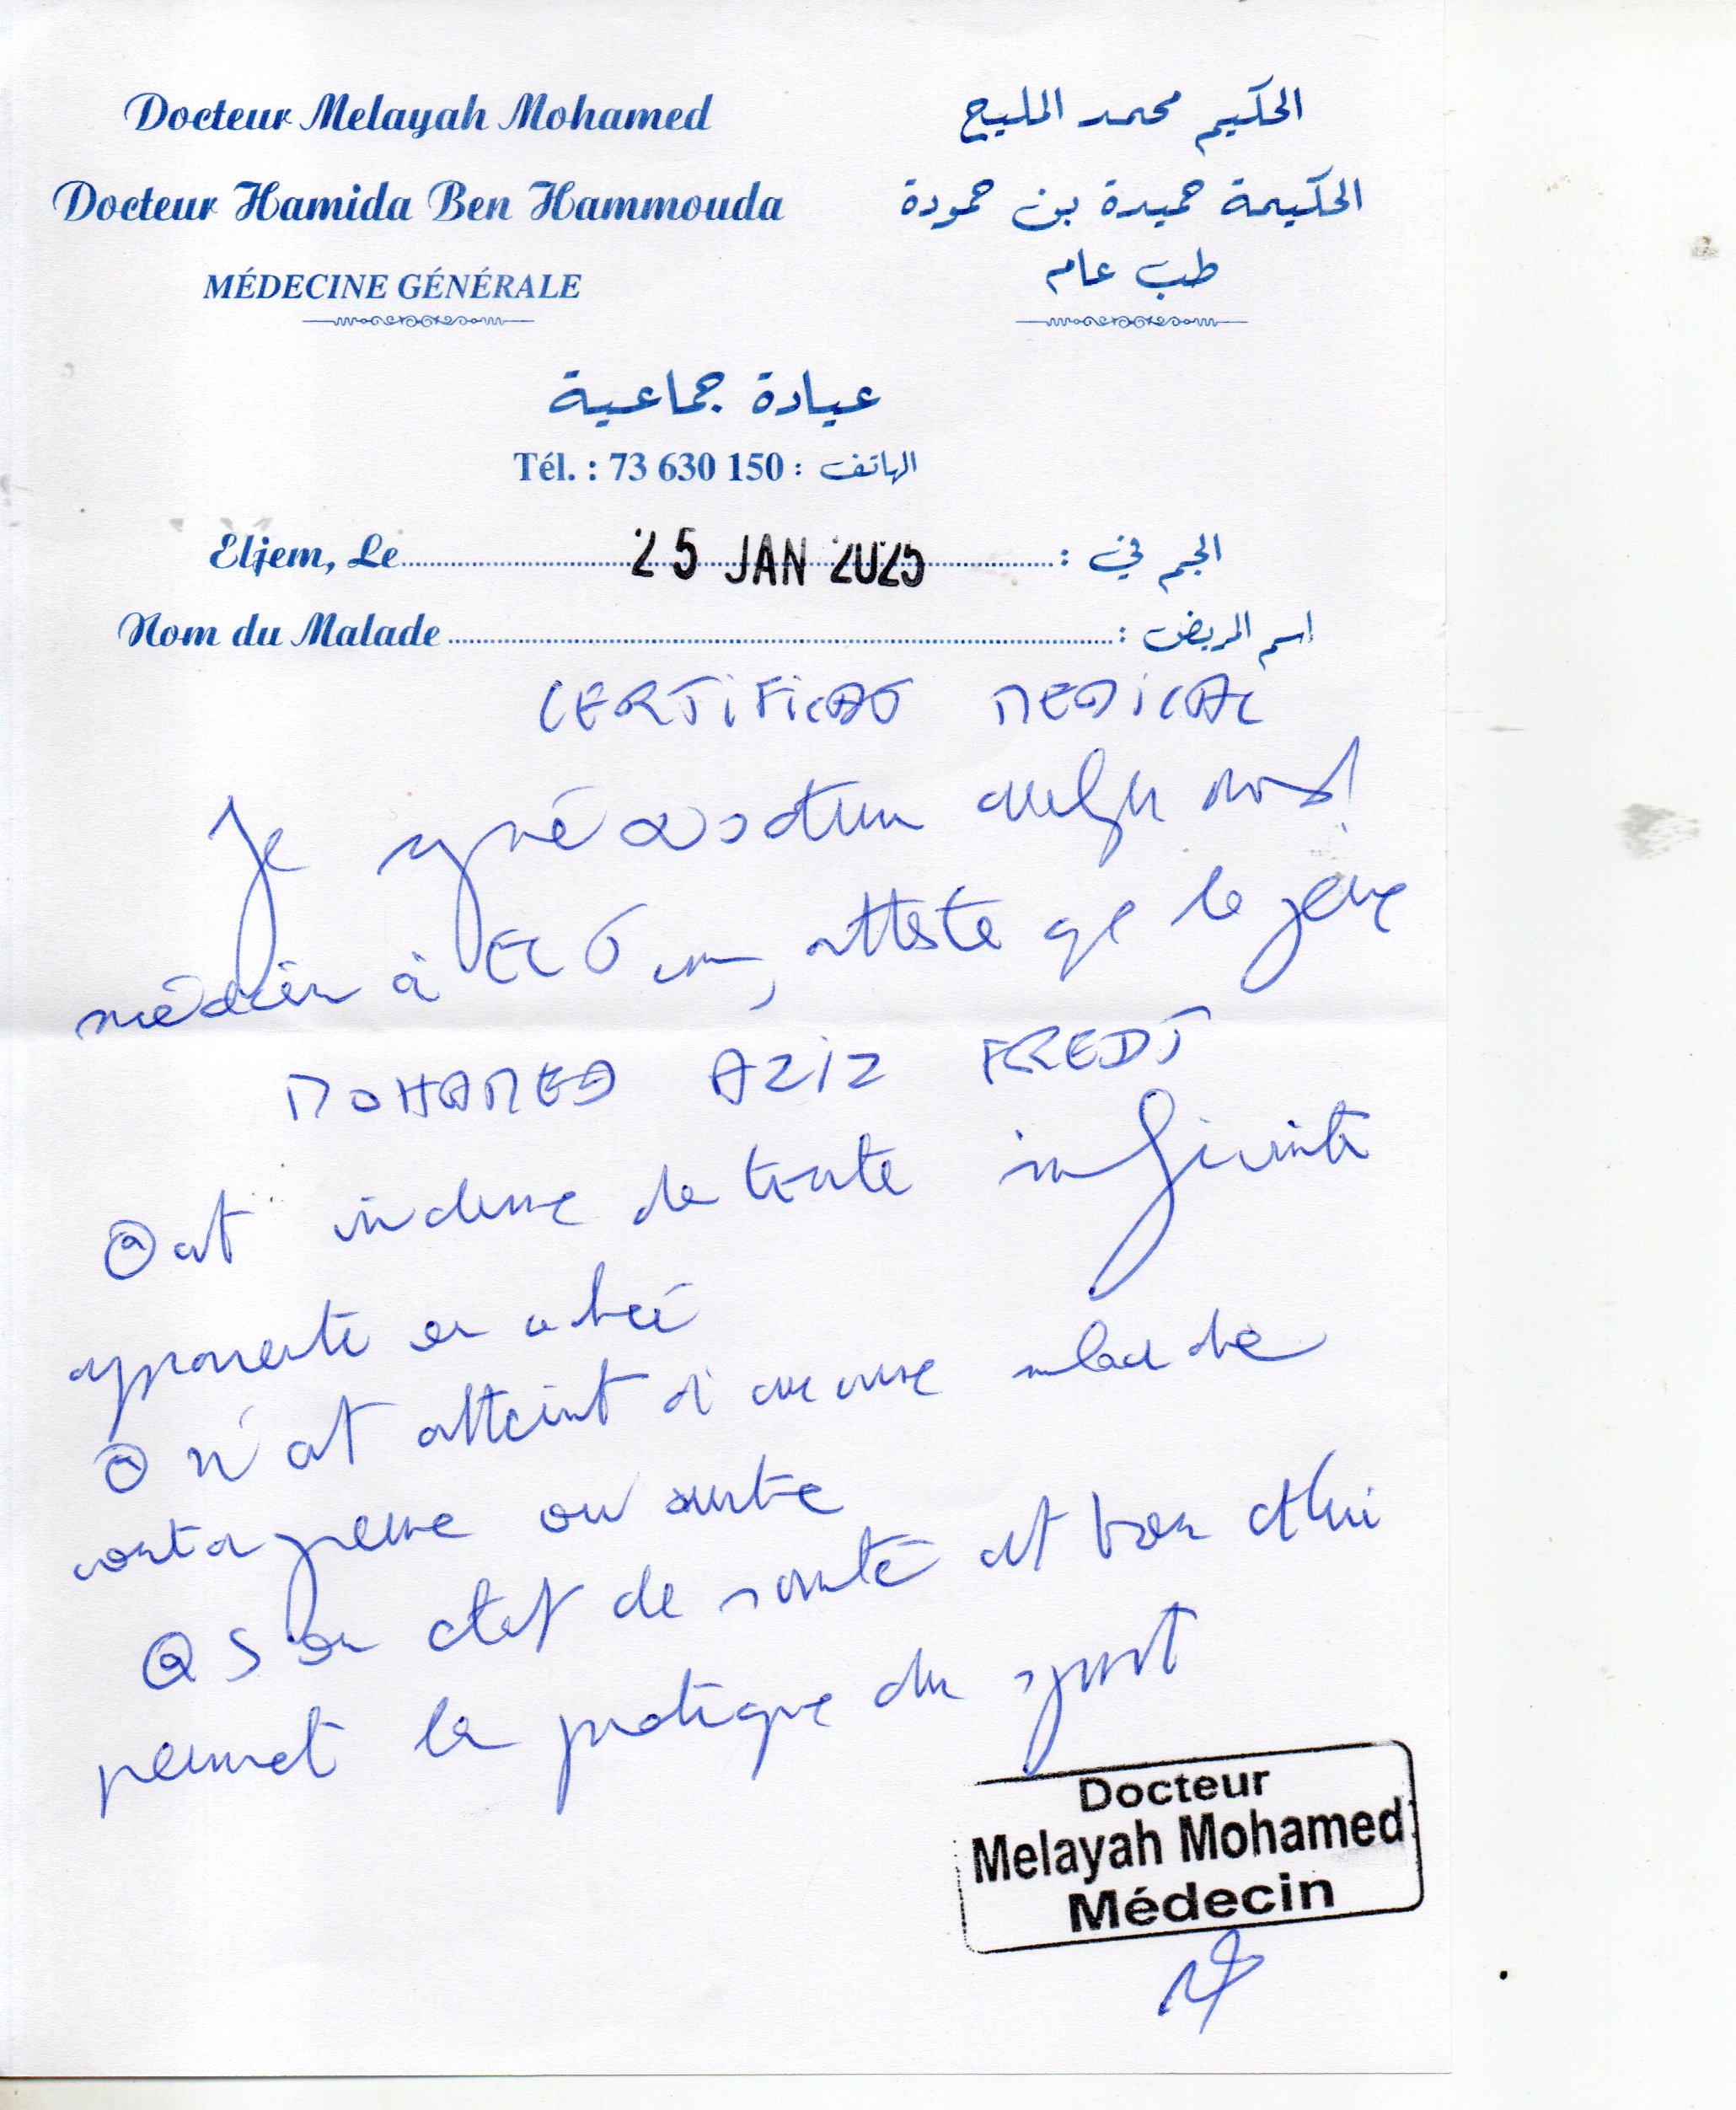 Docteur Melayah Mohamed
الحكيم محمد المليح
Docteur Hamida Ben Hammouda
الحكيمة حميدة بن حمودة
MÉDECINE GÉNÉRALE
طب عام
عيادة جماعية
Tél. : 73 630 150 : الهاتف
Eljem, Le 25 JAN 2025 الجم في :
Nom du Malade اسم المريض :
CERTIFICAT MEDICAL
Je Docteur
médecin à atteste que le jeune
MOHAMED AZIZ FREDJ
est indemne de toute infirmité
apparente ou
n'est atteint d'aucune maladie
contagieuse ou autre
Son état de santé est bon et lui
permet la pratique du sport
Docteur
Melayah Mohamed
Médecin